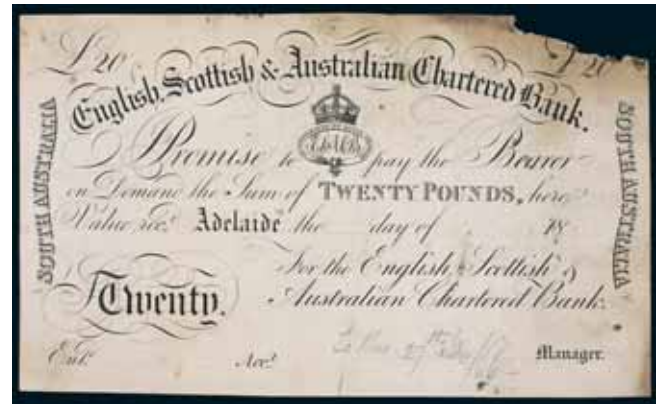 £ 20 £ 20
English, Scottish & Australian Chartered Bank.
SOUTH AUSTRALIA
SOUTH AUSTRALIA
I Promise to pay the Bearer
on Demand the Sum of TWENTY POUNDS, here
Value rec.d Adelaide the day of 18
For the English Scottish &
Australian Chartered Bank.
Twenty.
Ent.d Acc.t Manager.